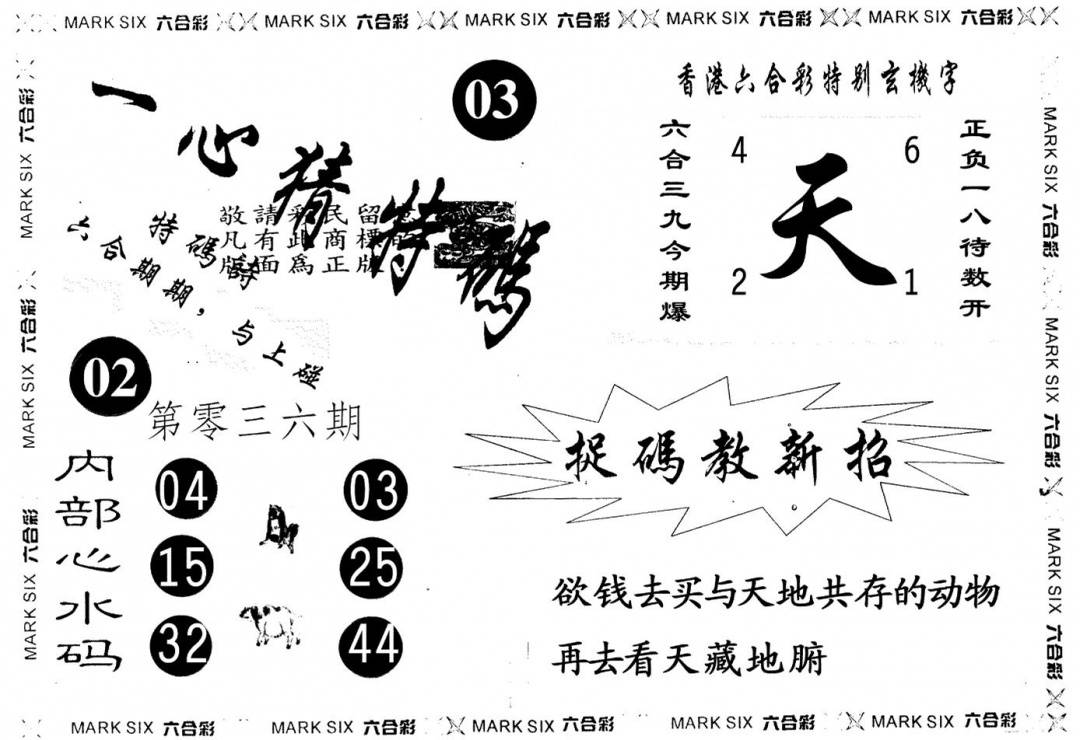 MARK SIX 六合彩 MARK SIX 六合彩 MARK SIX 六合彩 MARK SIX 六合彩 MARK SIX 六合彩
MARK SIX 六合彩 MARK SIX 六合彩 MARK SIX 六合彩
一心猜特碼
03
敬請彩民留意
凡有此商標的
版面為正版
特碼詩
六合期期，与上碰
02
第零三六期
内部心水码
04 03
15 25
32 44
香港六合彩特别玄機字
六合三九今期爆
4 6
天
2 1
正负一八待数开
捉碼教新招
欲钱去买与天地共存的动物
再去看天藏地腑
MARK SIX 六合彩 MARK SIX 六合彩 MARK SIX 六合彩
MARK SIX 六合彩 MARK SIX 六合彩 MARK SIX 六合彩 MARK SIX 六合彩 MARK SIX 六合彩